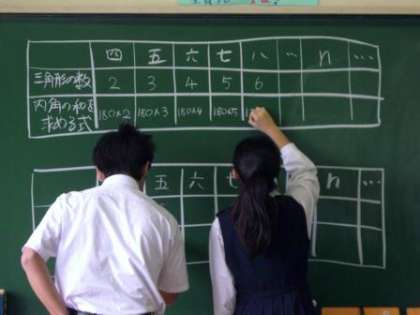 四 五 六 七 八 … n …
三角形の数 2 3 4 5 6
内角の和を求める式 180×2 180×3 180×4 180×5
五 六 七 n …